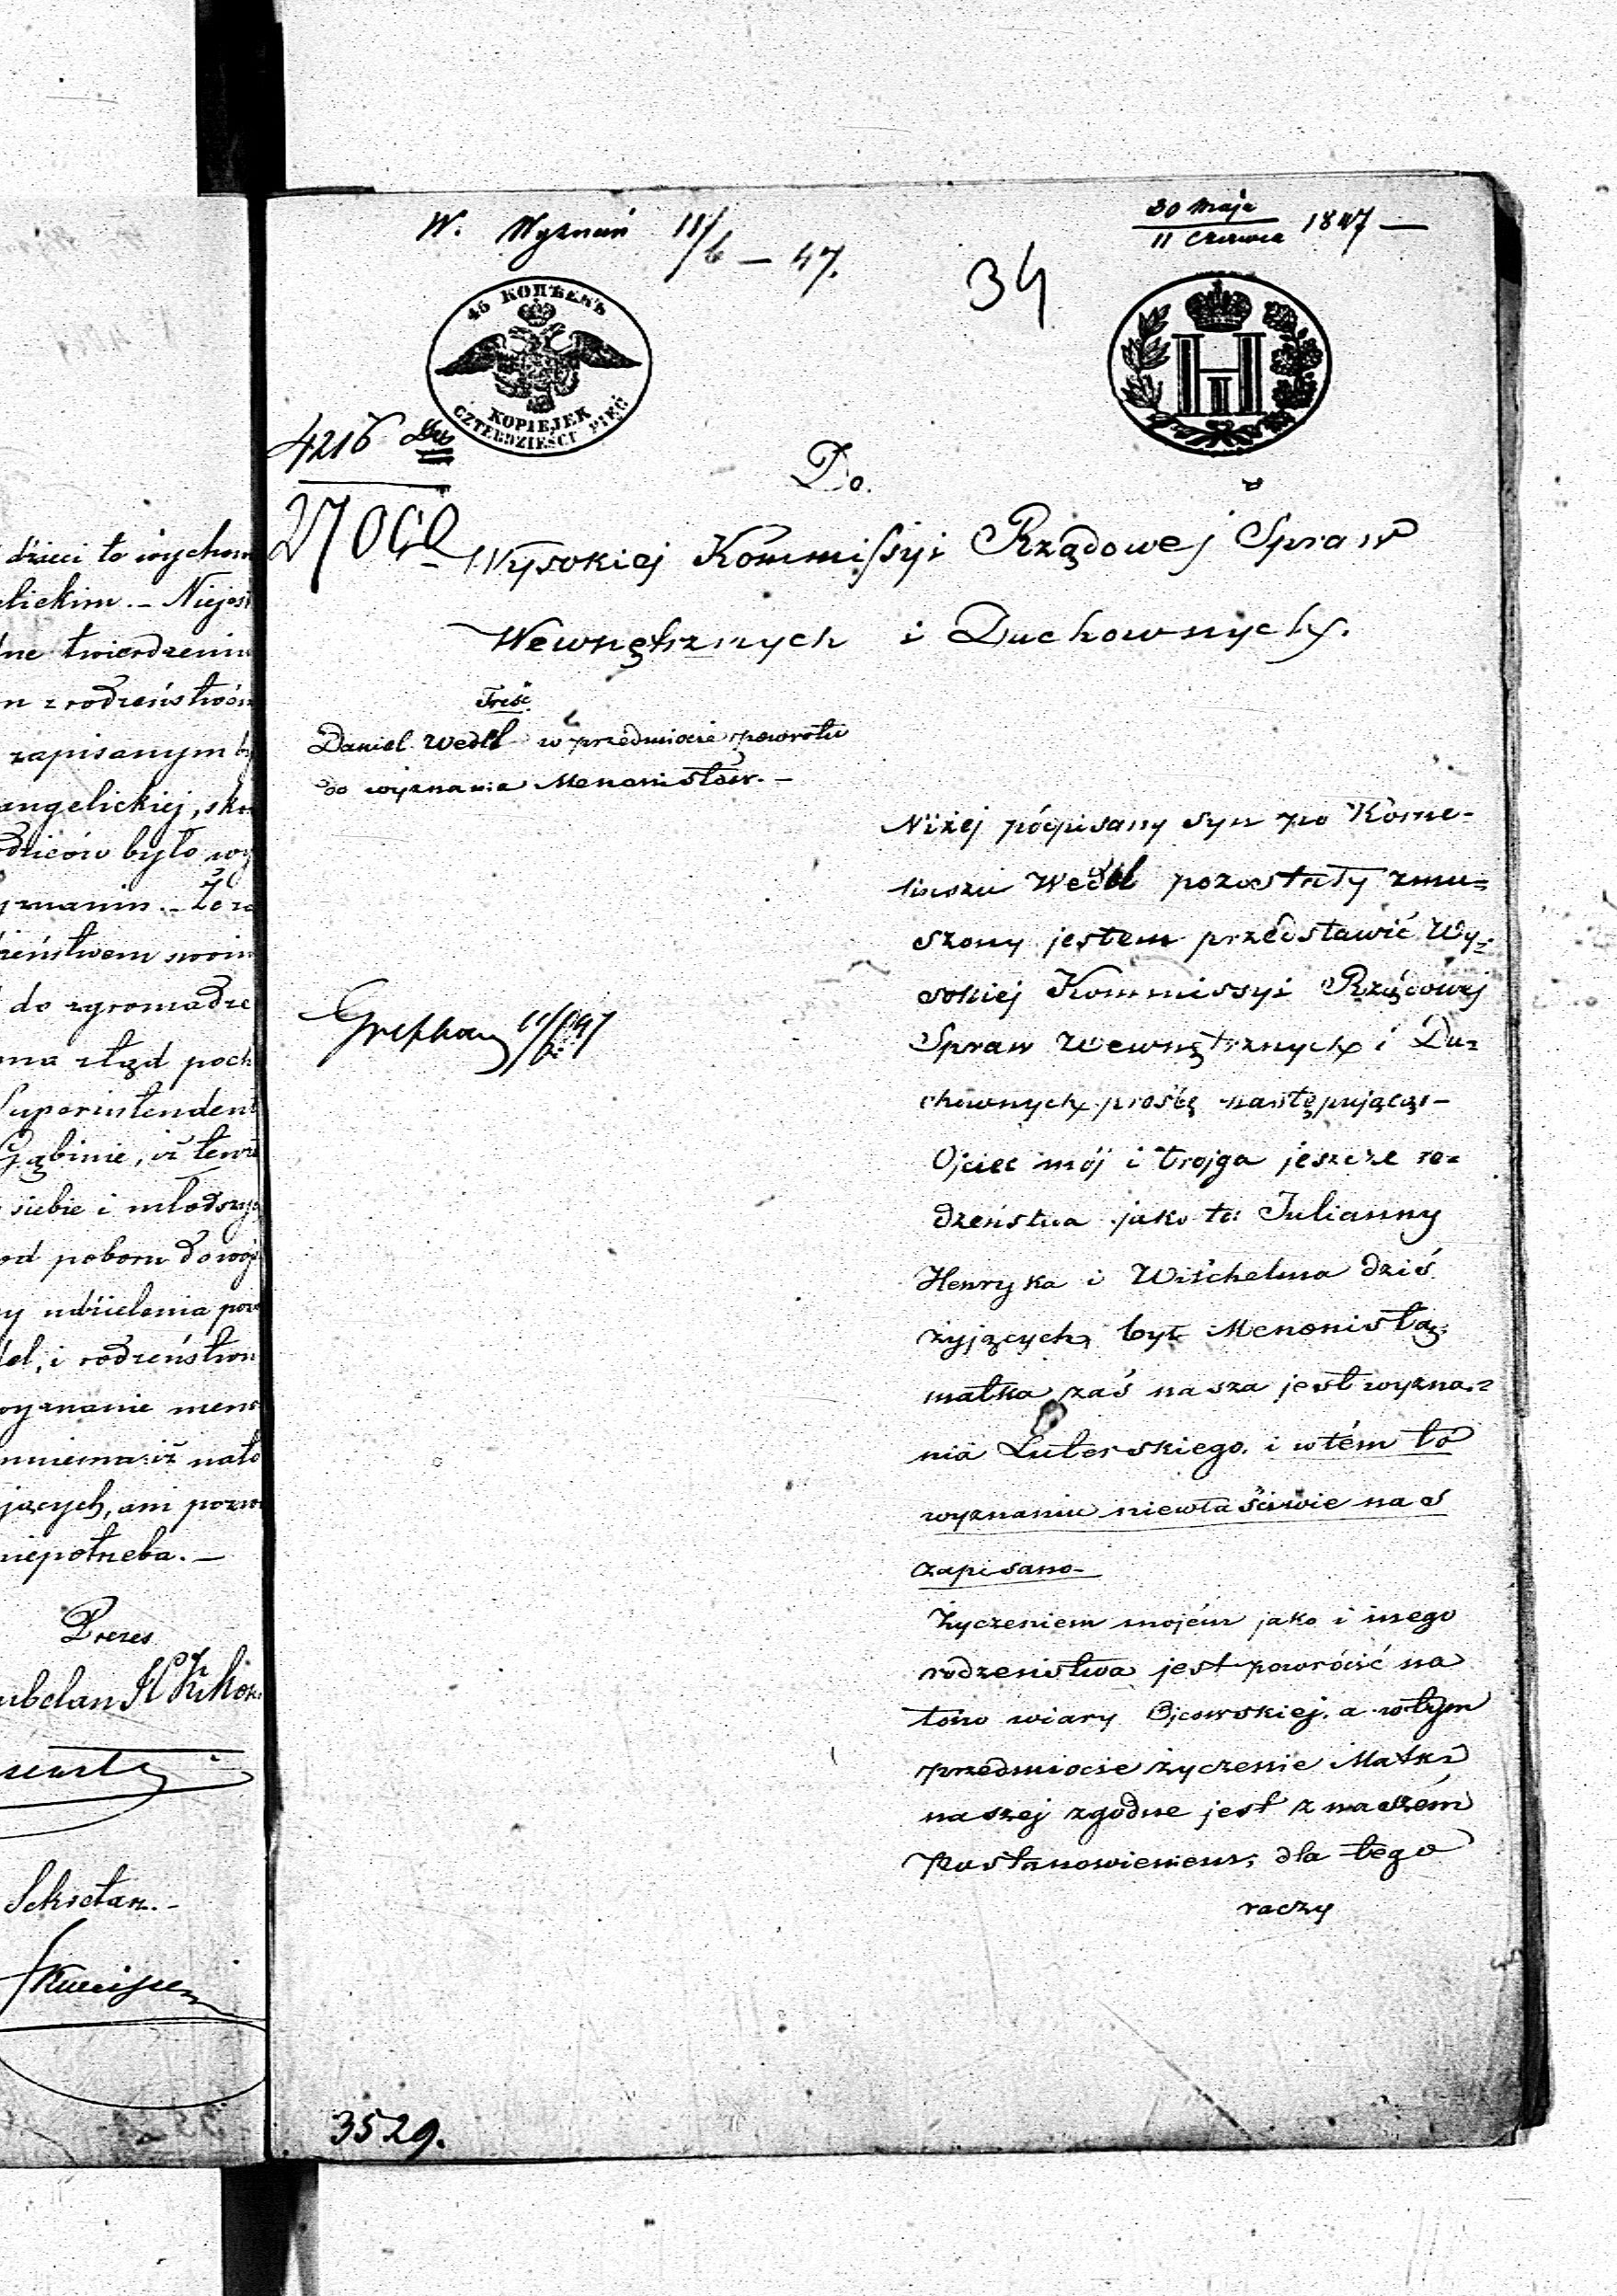 dzieci to wychow
elickim. – Niejest
dne twierdzenia
n z rodzeństwem
zapisanym by
angelickiej, sko
odziców było wy
yznaniu. – Że ze
zeństwem swoim
do zgromadze
ona ztąd poch
Superintendent
Gąbinie, iż tenże
siebie i młodszy
od poboru do woj
y udzielenia poz
del, i rodzeństwu
wyznanie meno
mniema iż nato
jących, ani pozwo
niepotrzeba. –
Prezes
Sekretarz. –
W. Wyznań 11/6 – 47.
30 Maja
11 Czerwca 1847 —
34
45 КОПѢЕКЪ
KOPIEJEK
CZTERDZIEŚCI PIĘĆ
НI
4216
Do.
Wysokiej Kommissyi Rządowej Spraw
Wewnętrznych i Duchownych.
Treść
Daniel Wedel w przedmiocie powrotu
do wyznania Menonistów. –
11/6 47
Niżej podpisany syn po Korne-
liuszu Wedel pozostały zmu=
szony jestem przedstawić Wy=
sokiej Kommissyi Rządowej
Spraw Wewnętrznych i Du=
chownych prośbę następującą: –
Ojciec mój i trojga jeszcze ro=
dzeństwa jako to: Julianny
Henryka i Wilchelma dziś
żyjących, był Menonistą,
matka zaś nasza jest wyzna=
nia Luterskiego, i w tém to
wyznaniu niewłaściwie nas
zapisano –
Życzeniem mojém jako i mego
rodzeństwa jest powrócić na
łono wiary Ojcowskiej, a w tym
przedmiocie życzenie Matki
naszej zgodne jest z naszém
Postanowieniem, dla tego
raczy
3529.